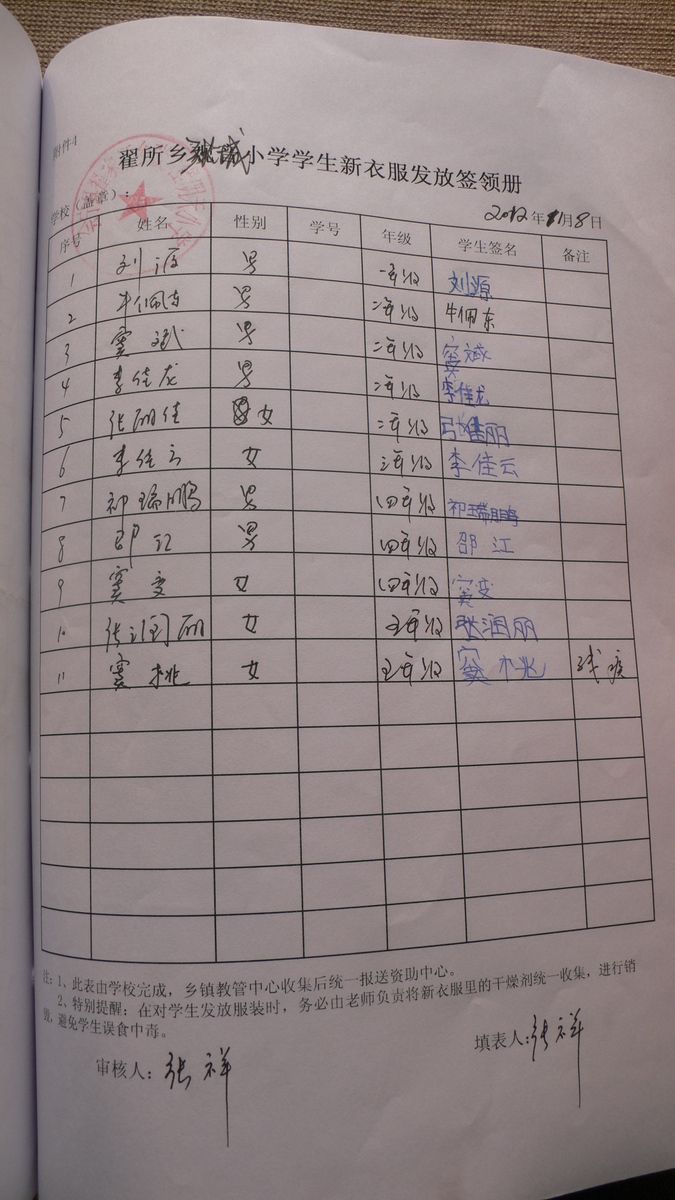 附件4
翟所乡 小学学生新衣服发放签领册
学校（盖章）： 2012年11月8日
序号 姓名 性别 学号 年级 学生签名 备注
1 刘源 男 一年级 刘源
2 牛佩东 男 二年级 牛佩东
3 窦斌 男 二年级 窦斌
4 李佳龙 男 二年级 李佳龙
5 张丽佳 女 二年级
6 李佳云 女 三年级 李佳云
7 祁瑞鹏 男 四年级 祁瑞鹏
8 邵江 男 四年级 邵江
9 窦变 女 四年级 窦变
10 张润丽 女 五年级 张润丽
11 窦桃 女 五年级 窦桃 残疾
注：1、此表由学校完成，乡镇教管中心收集后统一报送资助中心。
2、特别提醒：在对学生发放服装时，务必由老师负责将新衣服里的干燥剂统一收集，进行销
毁，避免学生误食中毒。
审核人：张祥 填表人：张祥